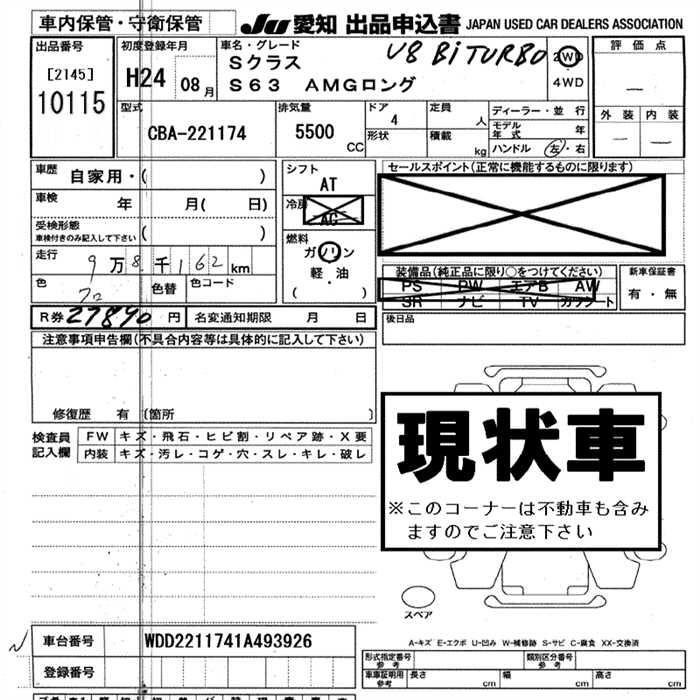 車内保管・守衛保管
JU 愛知 出品申込書 JAPAN USED CAR DEALERS ASSOCIATION
出品番号
[2145]
10115
初度登録年月
H24 08月
車名・グレード
Sクラス V8 BiTURBO
S63 AMGロング
2WD
4WD
評価点
—
外装 内装
— —
型式
CBA-221174
排気量
5500 CC
ドア
4
形状
定員 人
積載 kg
ディーラー・並行
モデル年式 年
ハンドル 左・右
車歴 自家用・( )
車検 年 月( 日)
受検形態
車検付きのみ記入して下さい ( )
走行 9万8千162km
色 クロ 色替 色コード
シフト
AT
冷房
AC
燃料
ガソリン
軽・油
( )
セールスポイント(正常に機能するものに限ります)
装備品(純品正に限り○をつけてください)
PS PW エアB AW
SR ナビ TV カワシート
新車保証書
有・無
R券 27890円 名変通知期限 月 日
後日品
注意事項申告欄(不具合内容等は具体的に記入して下さい)
修復歴 有 〔箇所 〕
検査員記入欄
FW キズ・飛石・ヒビ割・リペア跡・X要
内装 キズ・汚レ・コゲ・穴・スレ・キレ・破レ
現状車
※このコーナーは不動車も含み
ますのでご注意下さい
スペア
車台番号 WDD2211741A493926
登録番号
A-キズ E-エクボ U-凹み W-補修跡 S-サビ C-腐食 XX-交換済
形式指定番号
参考
類別区分番号
参考
車庫証明用
参考
長さ cm 幅 cm 高さ cm